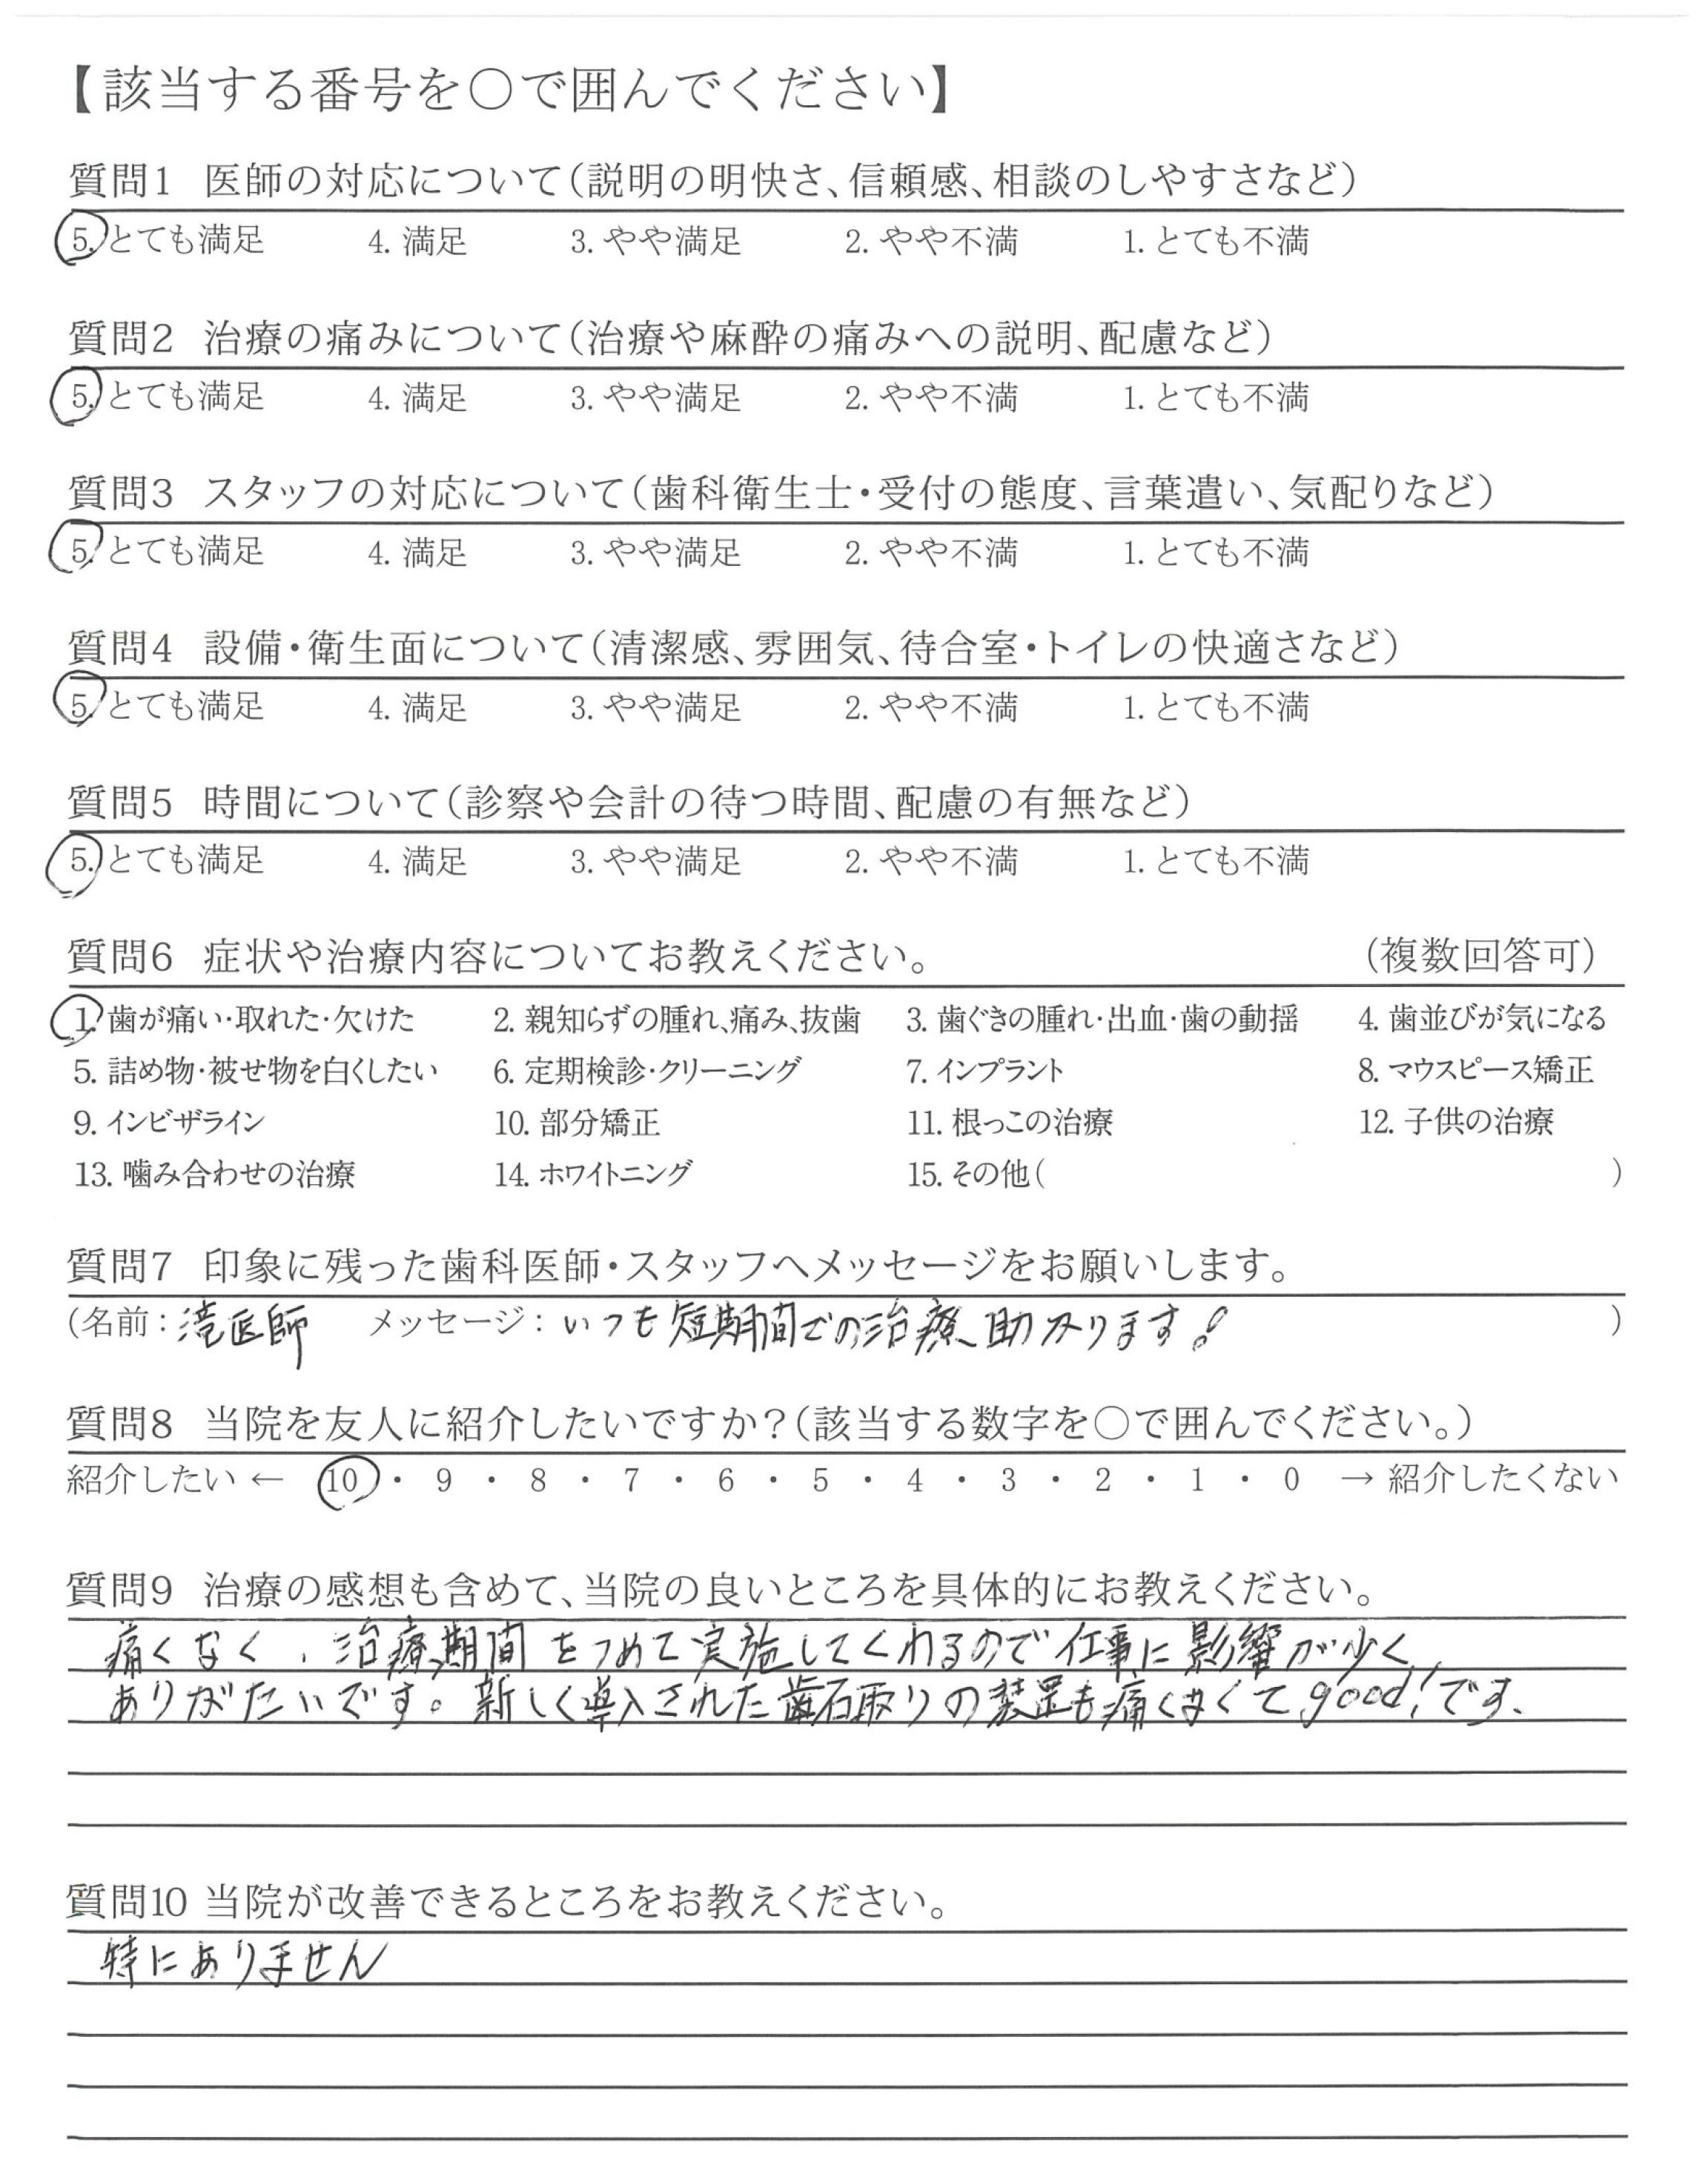 【該当する番号を○で囲んでください】
質問1 医師の対応について(説明の明快さ、信頼感、相談のしやすさなど)
5. とても満足 4. 満足 3. やや満足 2. やや不満 1. とても不満
質問2 治療の痛みについて(治療や麻酔の痛みへの説明、配慮など)
5. とても満足 4. 満足 3. やや満足 2. やや不満 1. とても不満
質問3 スタッフの対応について(歯科衛生士・受付の態度、言葉遣い、気配りなど)
5. とても満足 4. 満足 3. やや満足 2. やや不満 1. とても不満
質問4 設備・衛生面について(清潔感、雰囲気、待合室・トイレの快適さなど)
5. とても満足 4. 満足 3. やや満足 2. やや不満 1. とても不満
質問5 時間について(診察や会計の待つ時間、配慮の有無など)
5. とても満足 4. 満足 3. やや満足 2. やや不満 1. とても不満
質問6 症状や治療内容についてお教えください。 (複数回答可)
1. 歯が痛い・取れた・欠けた 2. 親知らずの腫れ、痛み、抜歯 3. 歯ぐきの腫れ・出血・歯の動揺 4. 歯並びが気になる
5. 詰め物・被せ物を白くしたい 6. 定期検診・クリーニング 7. インプラント 8. マウスピース矯正
9. インビザライン 10. 部分矯正 11. 根っこの治療 12. 子供の治療
13. 噛み合わせの治療 14. ホワイトニング 15. その他( )
質問7 印象に残った歯科医師・スタッフへメッセージをお願いします。
(名前: 滝医師 メッセージ: いつも短期間での治療、助かります! )
質問8 当院を友人に紹介したいですか?(該当する数字を○で囲んでください。)
紹介したい ← 10 ・ 9 ・ 8 ・ 7 ・ 6 ・ 5 ・ 4 ・ 3 ・ 2 ・ 1 ・ 0 → 紹介したくない
質問9 治療の感想も含めて、当院の良いところを具体的にお教えください。
痛くなく、治療期間をつめて実施してくれるので仕事に影響が少く、
ありがたいです。新しく導入された歯石取りの装置も痛くなくてgood!です、
質問10 当院が改善できるところをお教えください。
特にありません